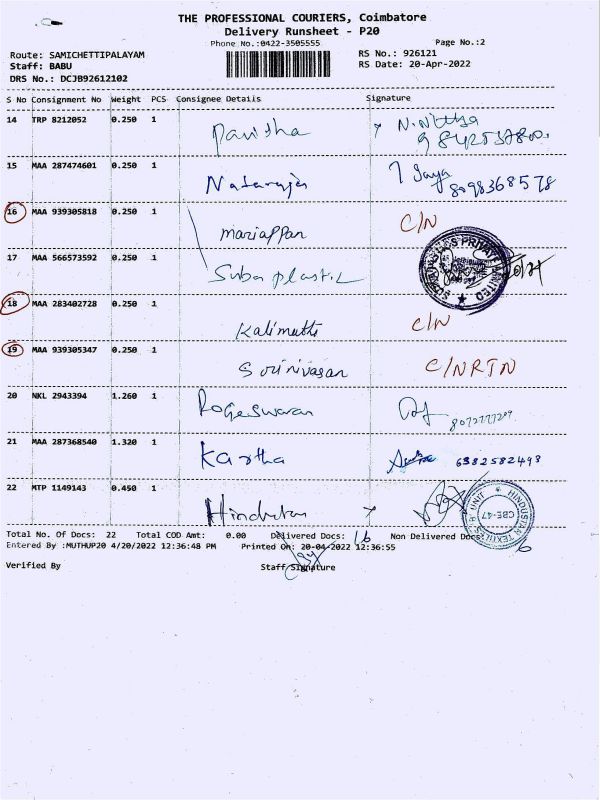 THE PROFESSIONAL COURIERS, Coimbatore
Delivery Runsheet - P20
Phone No.:0422-3505555 Page No.:2
Route: SAMICHETTIPALAYAM RS No.: 926121
Staff: BABU RS Date: 20-Apr-2022
DRS No.: DCJB92612102
S No Consignment No Weight PCS Consignee Details Signature
14 TRP 8212052 0.250 1 Pavitha
15 MAA 287474601 0.250 1 Natarajan Jaya 8098368578
16 MAA 939305818 0.250 1 mariappan C/N
17 MAA 566573592 0.250 1 Suba plastic
18 MAA 283402728 0.250 1 Kalimuthu C/N
19 MAA 939305347 0.250 1 Srinivasan C/N RTN
20 NKL 2943394 1.260 1 Rogeswaran
21 MAA 287368540 1.320 1 Kartha 6382582493
22 MTP 1149143 0.450 1 Hindustan
Total No. Of Docs: 22 Total COD Amt: 0.00 Delivered Docs: 16 Non Delivered Docs: 6
Entered By :MUTHUP20 4/20/2022 12:36:48 PM Printed On: 20-04-2022 12:36:55
Verified By Staff Signature